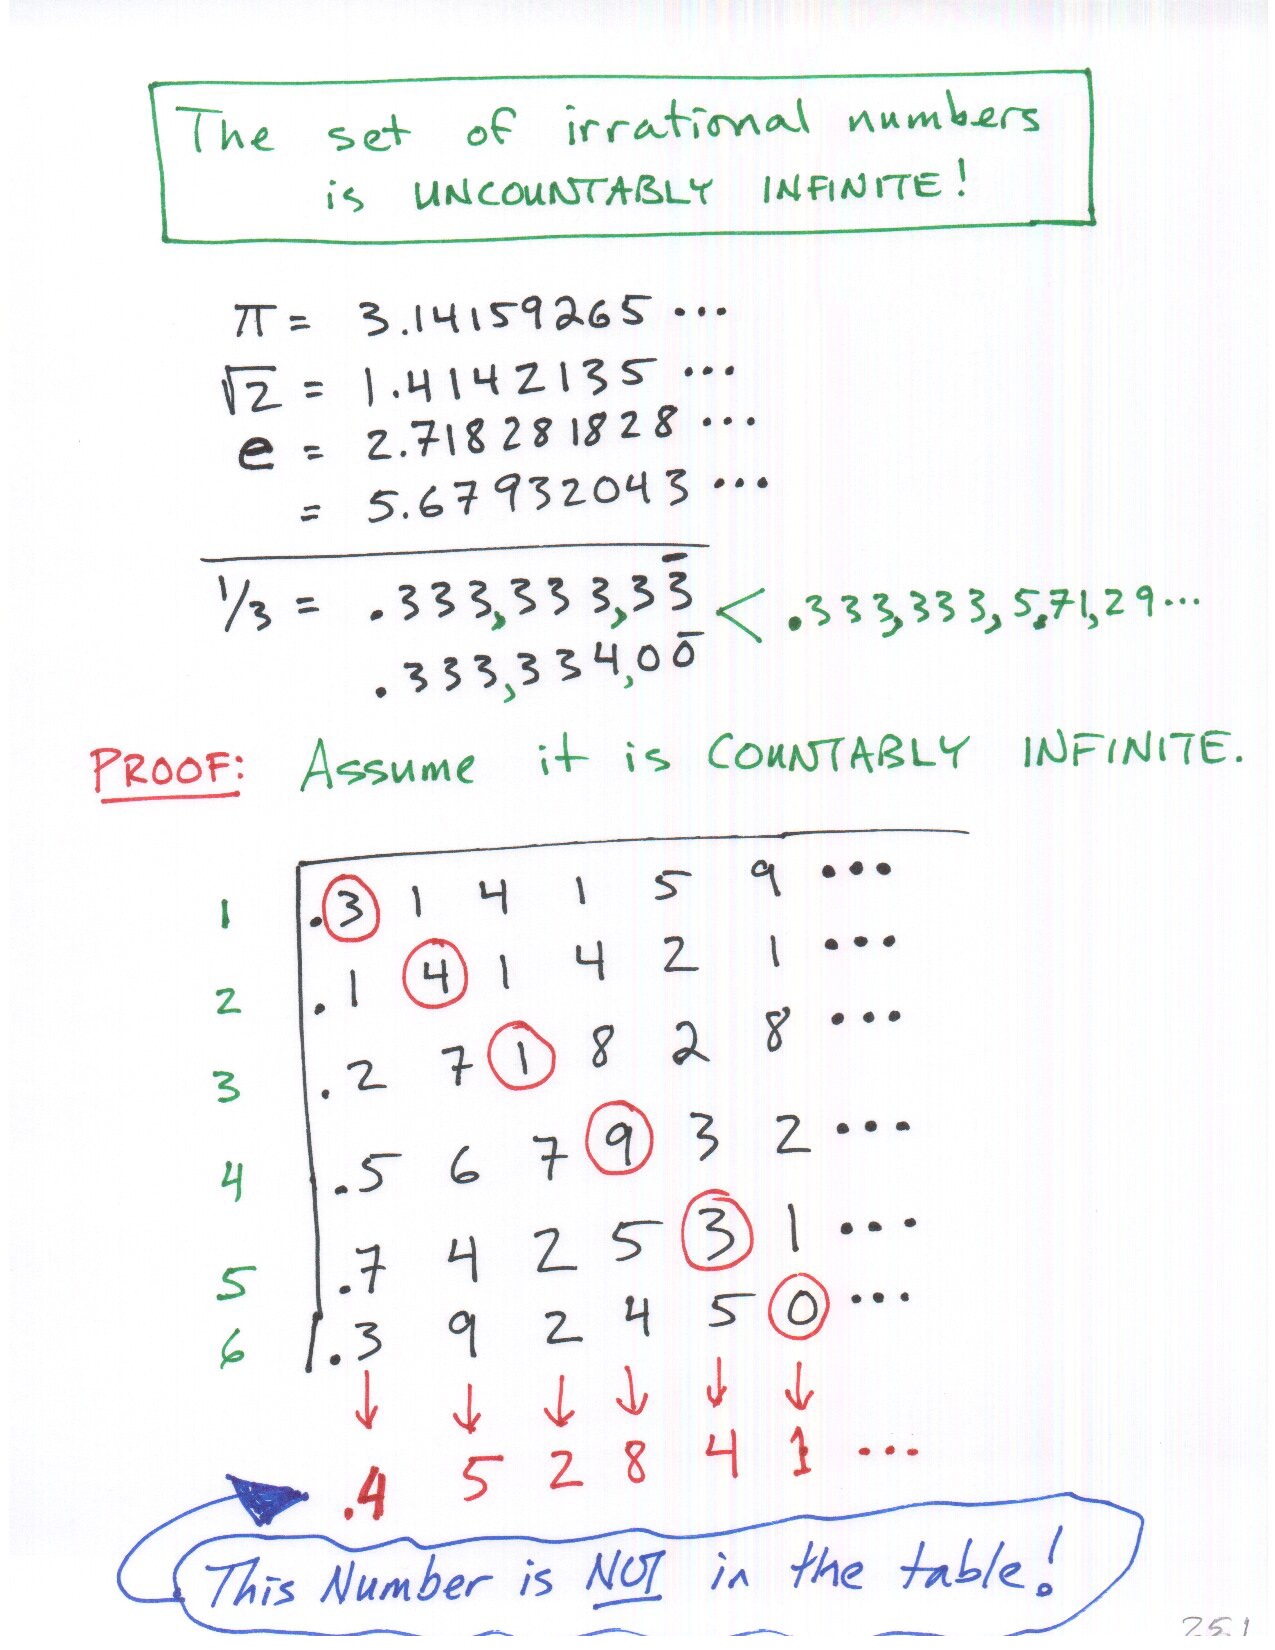 The set of irrational numbers
is UNCOUNTABLY INFINITE!
π = 3.14159265 ...
√2 = 1.4142135 ...
e = 2.718281828 ...
= 5.67932043 ...
1/3 = .333,333,33̅ < .333,333,5,71,29...
.333,334,00̅
PROOF: Assume it is COUNTABLY INFINITE.
1 .3 1 4 1 5 9 ...
2 .1 4 1 4 2 1 ...
3 .2 7 1 8 2 8 ...
4 .5 6 7 9 3 2 ...
5 .7 4 2 5 3 1 ...
6 .3 9 2 4 5 0 ...
↓ ↓ ↓ ↓ ↓ ↓
.4 5 2 8 4 1 ...
This Number is NOT in the table!